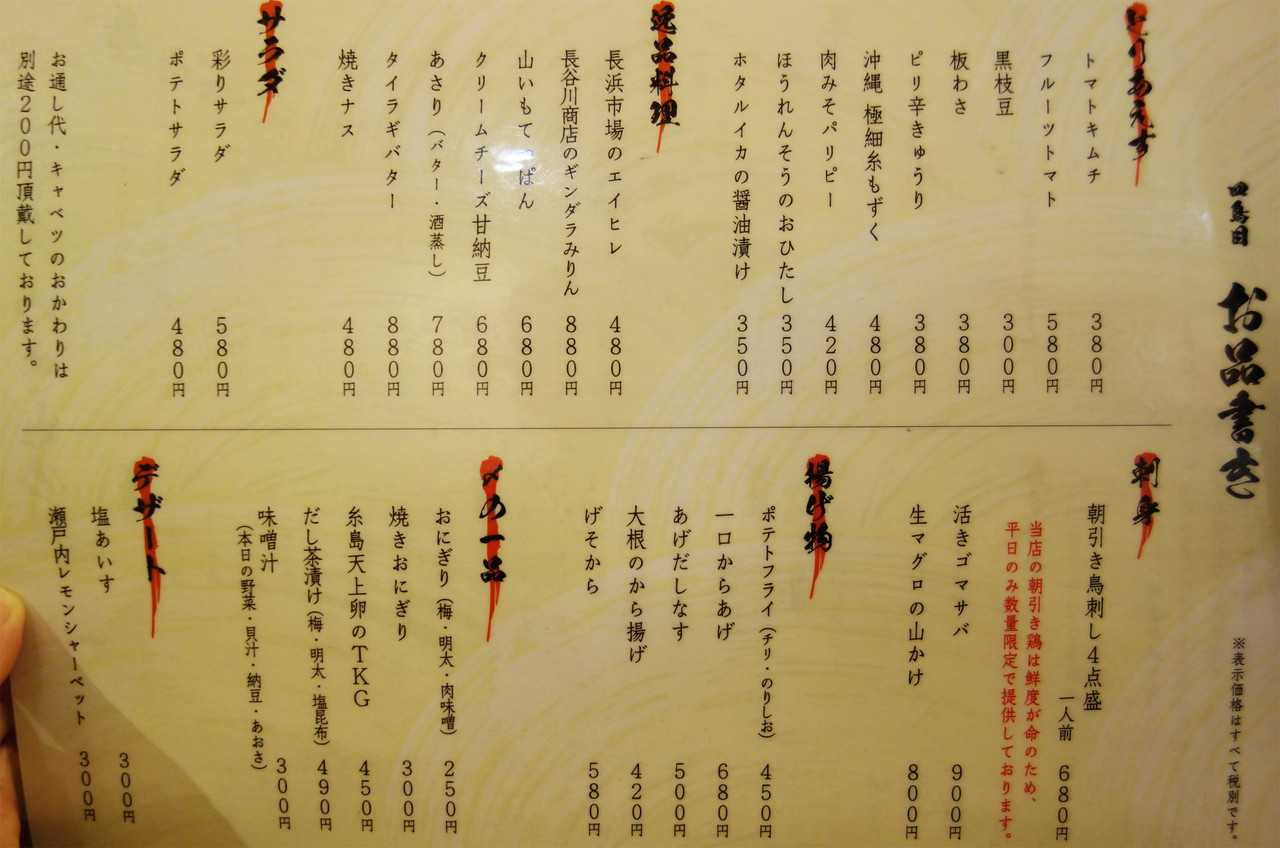 四鳥目 お品書き
※表示価格はすべて税別です。
とりあえず
トマトキムチ 380円
フルーツトマト 580円
黒枝豆 300円
板わさ 380円
ピリ辛きゅうり 380円
沖縄 極細糸もずく 480円
肉みそパリピー 420円
ほうれんそうのおひたし 350円
ホタルイカの醤油漬け 350円
逸品料理
長浜市場のエイヒレ 480円
長谷川商店のギンダラみりん 880円
山いもてっぱん 680円
クリームチーズ甘納豆 680円
あさり（バター・酒蒸し） 780円
タイラギバター 880円
焼きナス 480円
サラダ
彩りサラダ 580円
ポテトサラダ 480円
お通し代・キャベツのおかわりは
別途200円頂戴しております。
刺身
朝引き鳥刺し4点盛
一人前 680円
当店の朝引き鶏は鮮度が命のため、
平日のみ数量限定で提供しております。
活きゴマサバ 900円
生マグロの山かけ 800円
揚げ物
ポテトフライ（チリ・のりしお） 450円
一口からあげ 680円
あげだしなす 500円
大根のから揚げ 420円
げそから 580円
〆の一品
おにぎり（梅・明太・肉味噌） 250円
焼きおにぎり 300円
糸島天上卵のTKG 450円
だし茶漬け（梅・明太・塩昆布） 490円
味噌汁 300円
（本日の野菜・貝汁・納豆・あおさ）
デザート
塩あいす 300円
瀬戸内レモンシャーベット 300円